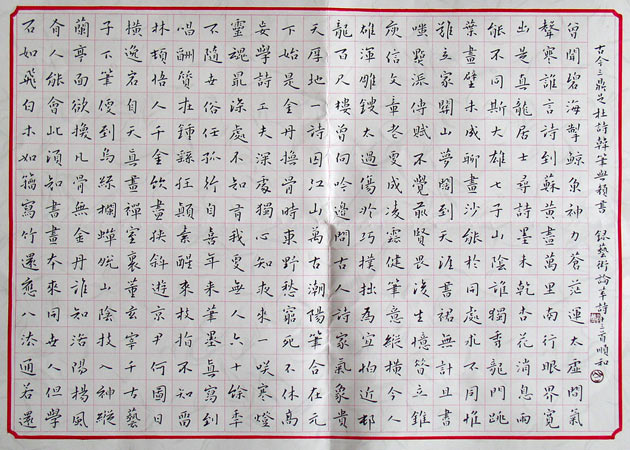 石如飛白木如籀寫竹還應八法通若還
有人能會此須知書畫本來同世人但學
蘭亭面欲換凡骨無金丹誰知洛陽楊風
子下筆便到烏絲欄蟬蛻山陰技入神縱
橫逸自天畫禪室董玄宰千古藝
林頓悟人千金飲狹斜遊京尹何圖日
唱酬贊在鍾繇狂顛素醒來技指不知雷
不隨世俗任孤行自喜年來筆墨真寫到
靈魂最深處不知有我更無人六十餘季
妄學詩工夫深處獨心知夜來一咲寒燈
下始是金丹換骨時東野愁窮死不休高
天厚地一詩囚江山萬古潮陽筆合在元
龍百尺樓曾向吟邊問古人詩家氣象貴
雄渾雕鎪太過傷於巧樸拙爲宜怕近村
庾信文章老更成凌雲健筆意縱橫今人
嗤點流傳賦不覺前賢畏後生憶昔立錐
難立家關山夢闊到天涯書裙無計且書
葉畫壁未成聊畫沙能於同處求不同惟
能不同斯大雄七子山陰誰獨秀龍門跳
出是真龍居士尋詩墨未乾杏花消息雨
聲寒誰言詩到蘇黃盡萬里南行眼界寬
曾聞碧海掣鯨魚神力蒼茫運太虛間氣
古今三鼎足杜詩韓筆與顏書 録藝術論平詩十首順和